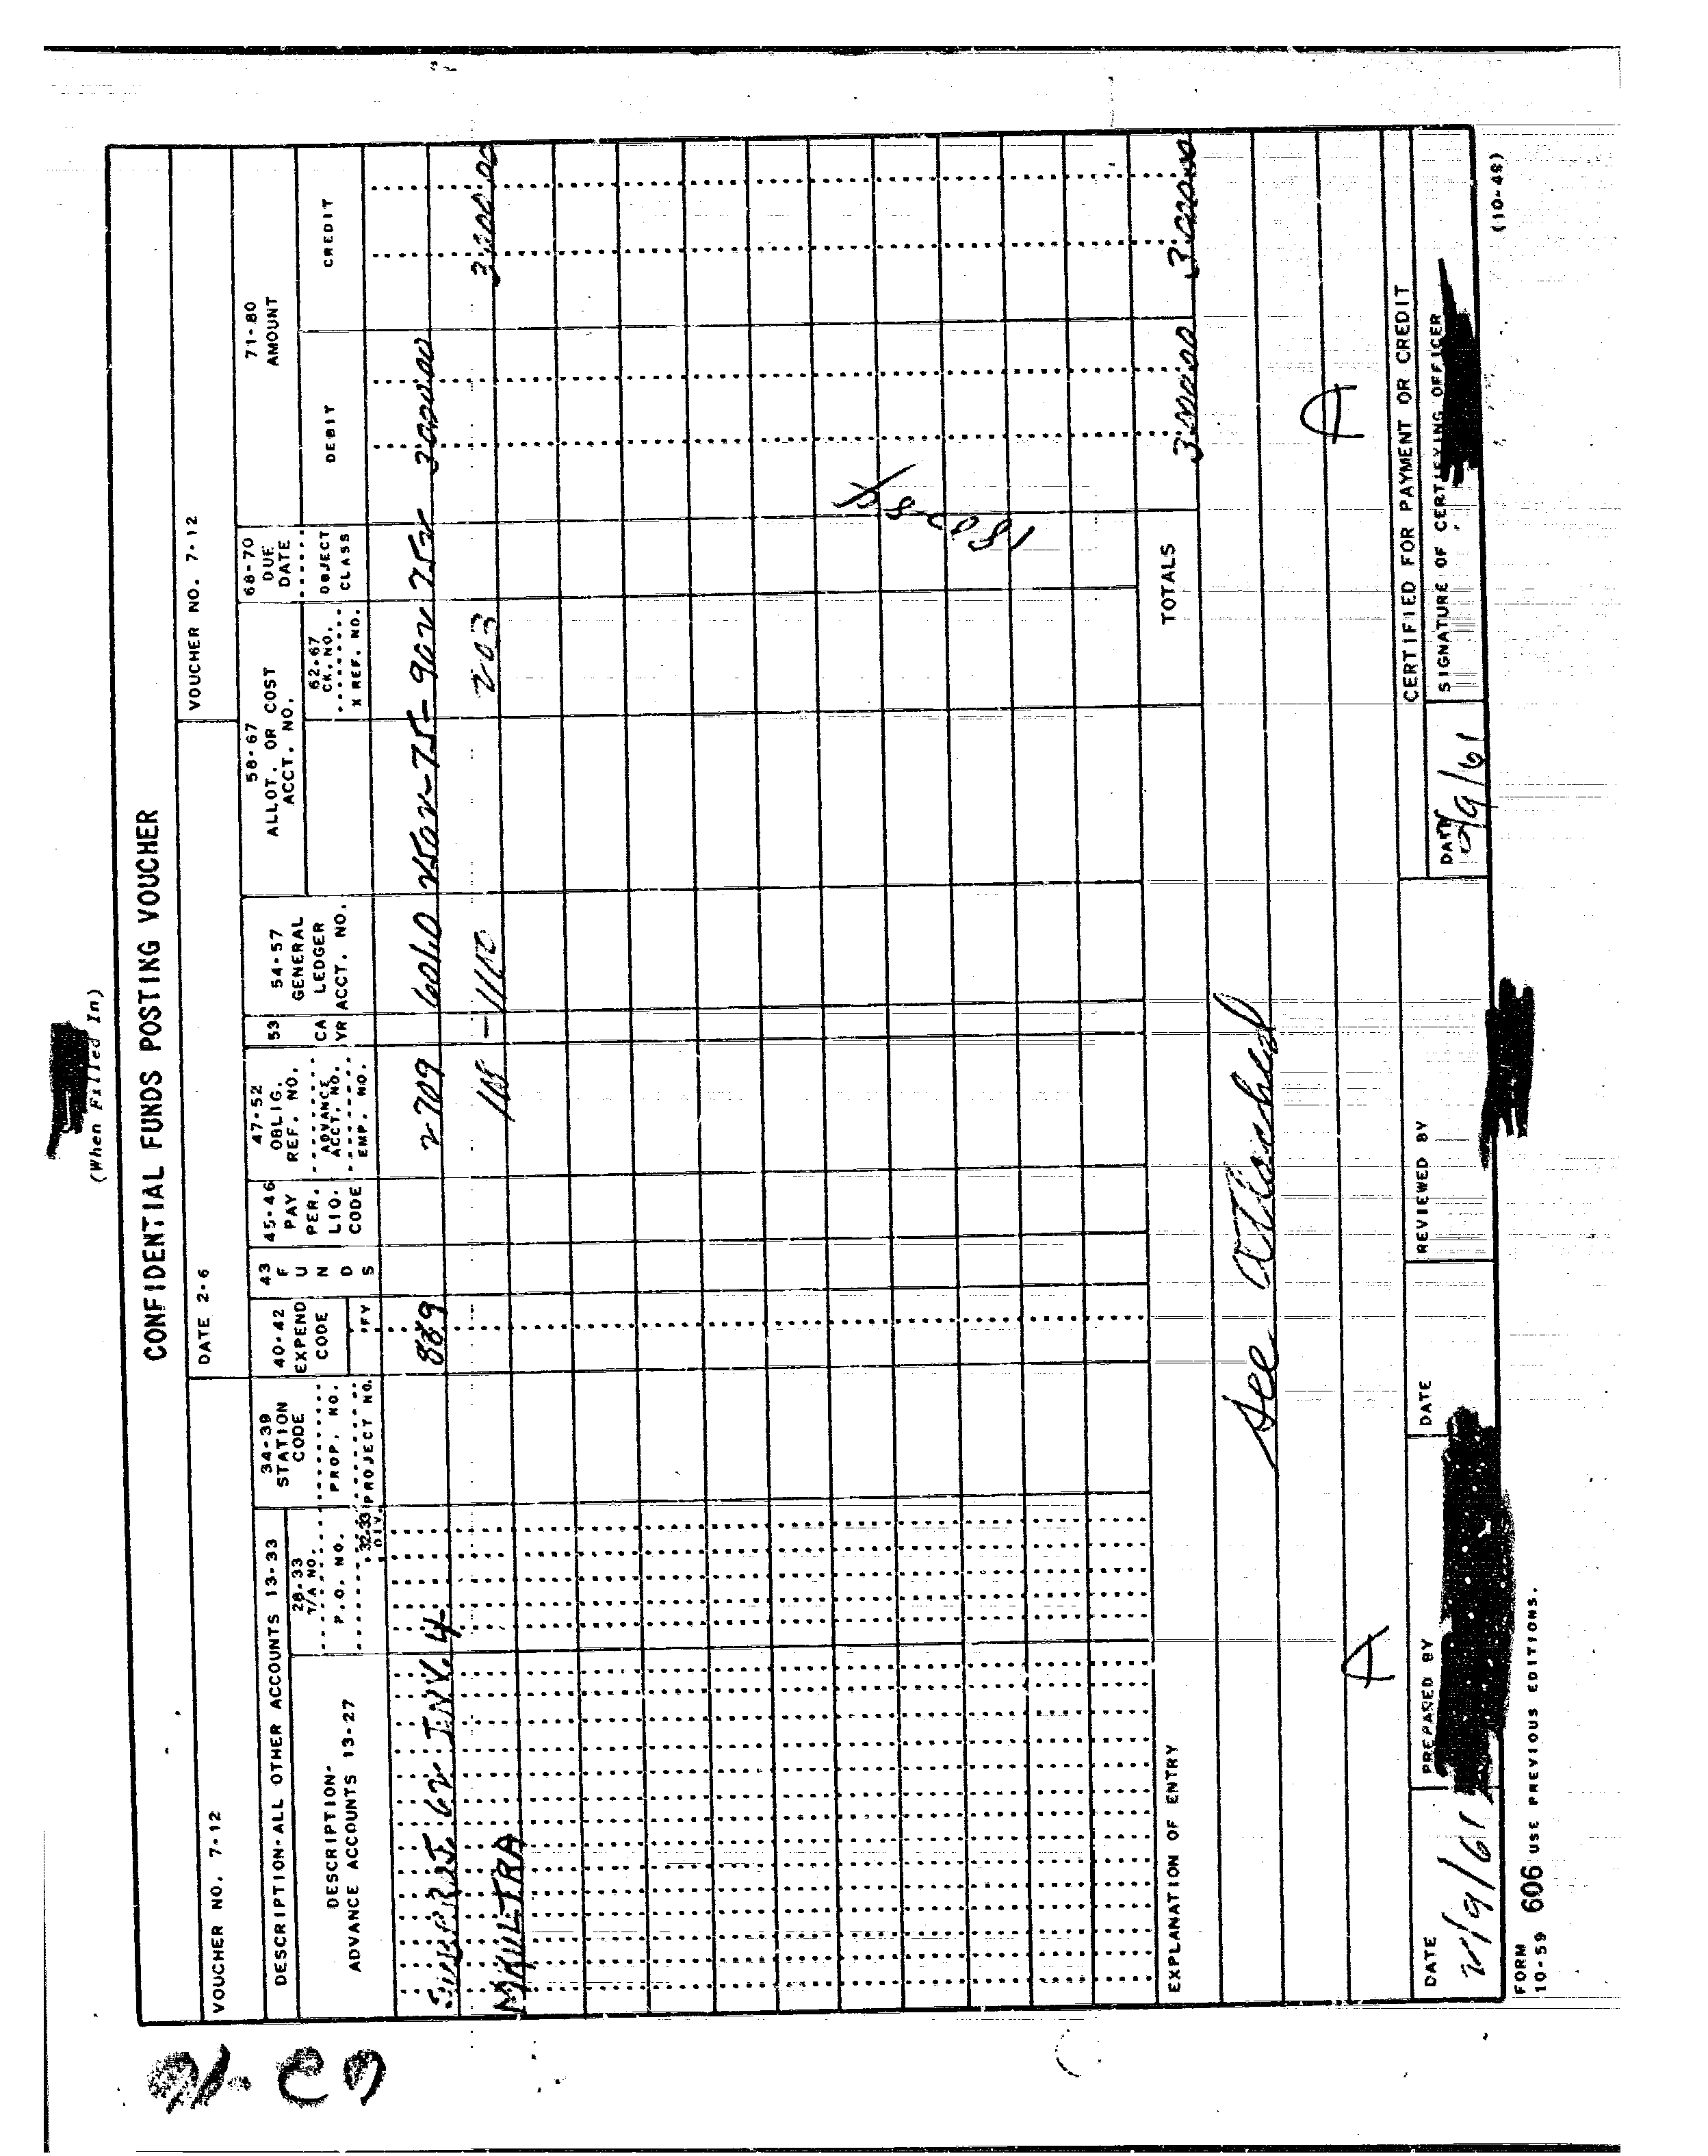 (When Filled In)
CONFIDENTIAL FUNDS POSTING VOUCHER
VOUCHER NO. 7-12
DATE 2-6
VOUCHER NO. 7-12
DESCRIPTION-ALL OTHER ACCOUNTS 13-33
DESCRIPTION-
ADVANCE ACCOUNTS 13-27
28-33
T/A NO.
P.O. NO.
32-33
DIV.
34-39
STATION
CODE
PROP. NO.
PROJECT NO.
40-42
EXPEND
CODE
FY
43
F
U
N
D
S
45-46
PAY
PER.
LIQ.
CODE
47-52
OBLIG.
REF. NO.
ADVANCE
ACCT. NO.
EMP. NO.
53
CA
YR
54-57
GENERAL
LEDGER
ACCT. NO.
58-67
ALLOT. OR COST
ACCT. NO.
62-67
CK. NO.
X REF. NO.
68-70
DUE
DATE
OBJECT
CLASS
71-80
AMOUNT
DEBIT
CREDIT
SUBPROJ. 62 INV. 4 889 2709 601.0 2502-75-902 752 3000.00
MKULTRA 1110 203 3,000.00
TOTALS 3,000.00 3,000.00
EXPLANATION OF ENTRY
See attached
A
A
CERTIFIED FOR PAYMENT OR CREDIT
DATE
2/9/61
PREPARED BY
DATE
REVIEWED BY
DATE
2/9/61
SIGNATURE OF CERTIFYING OFFICER
FORM
10-59 606 USE PREVIOUS EDITIONS.
(10-48)